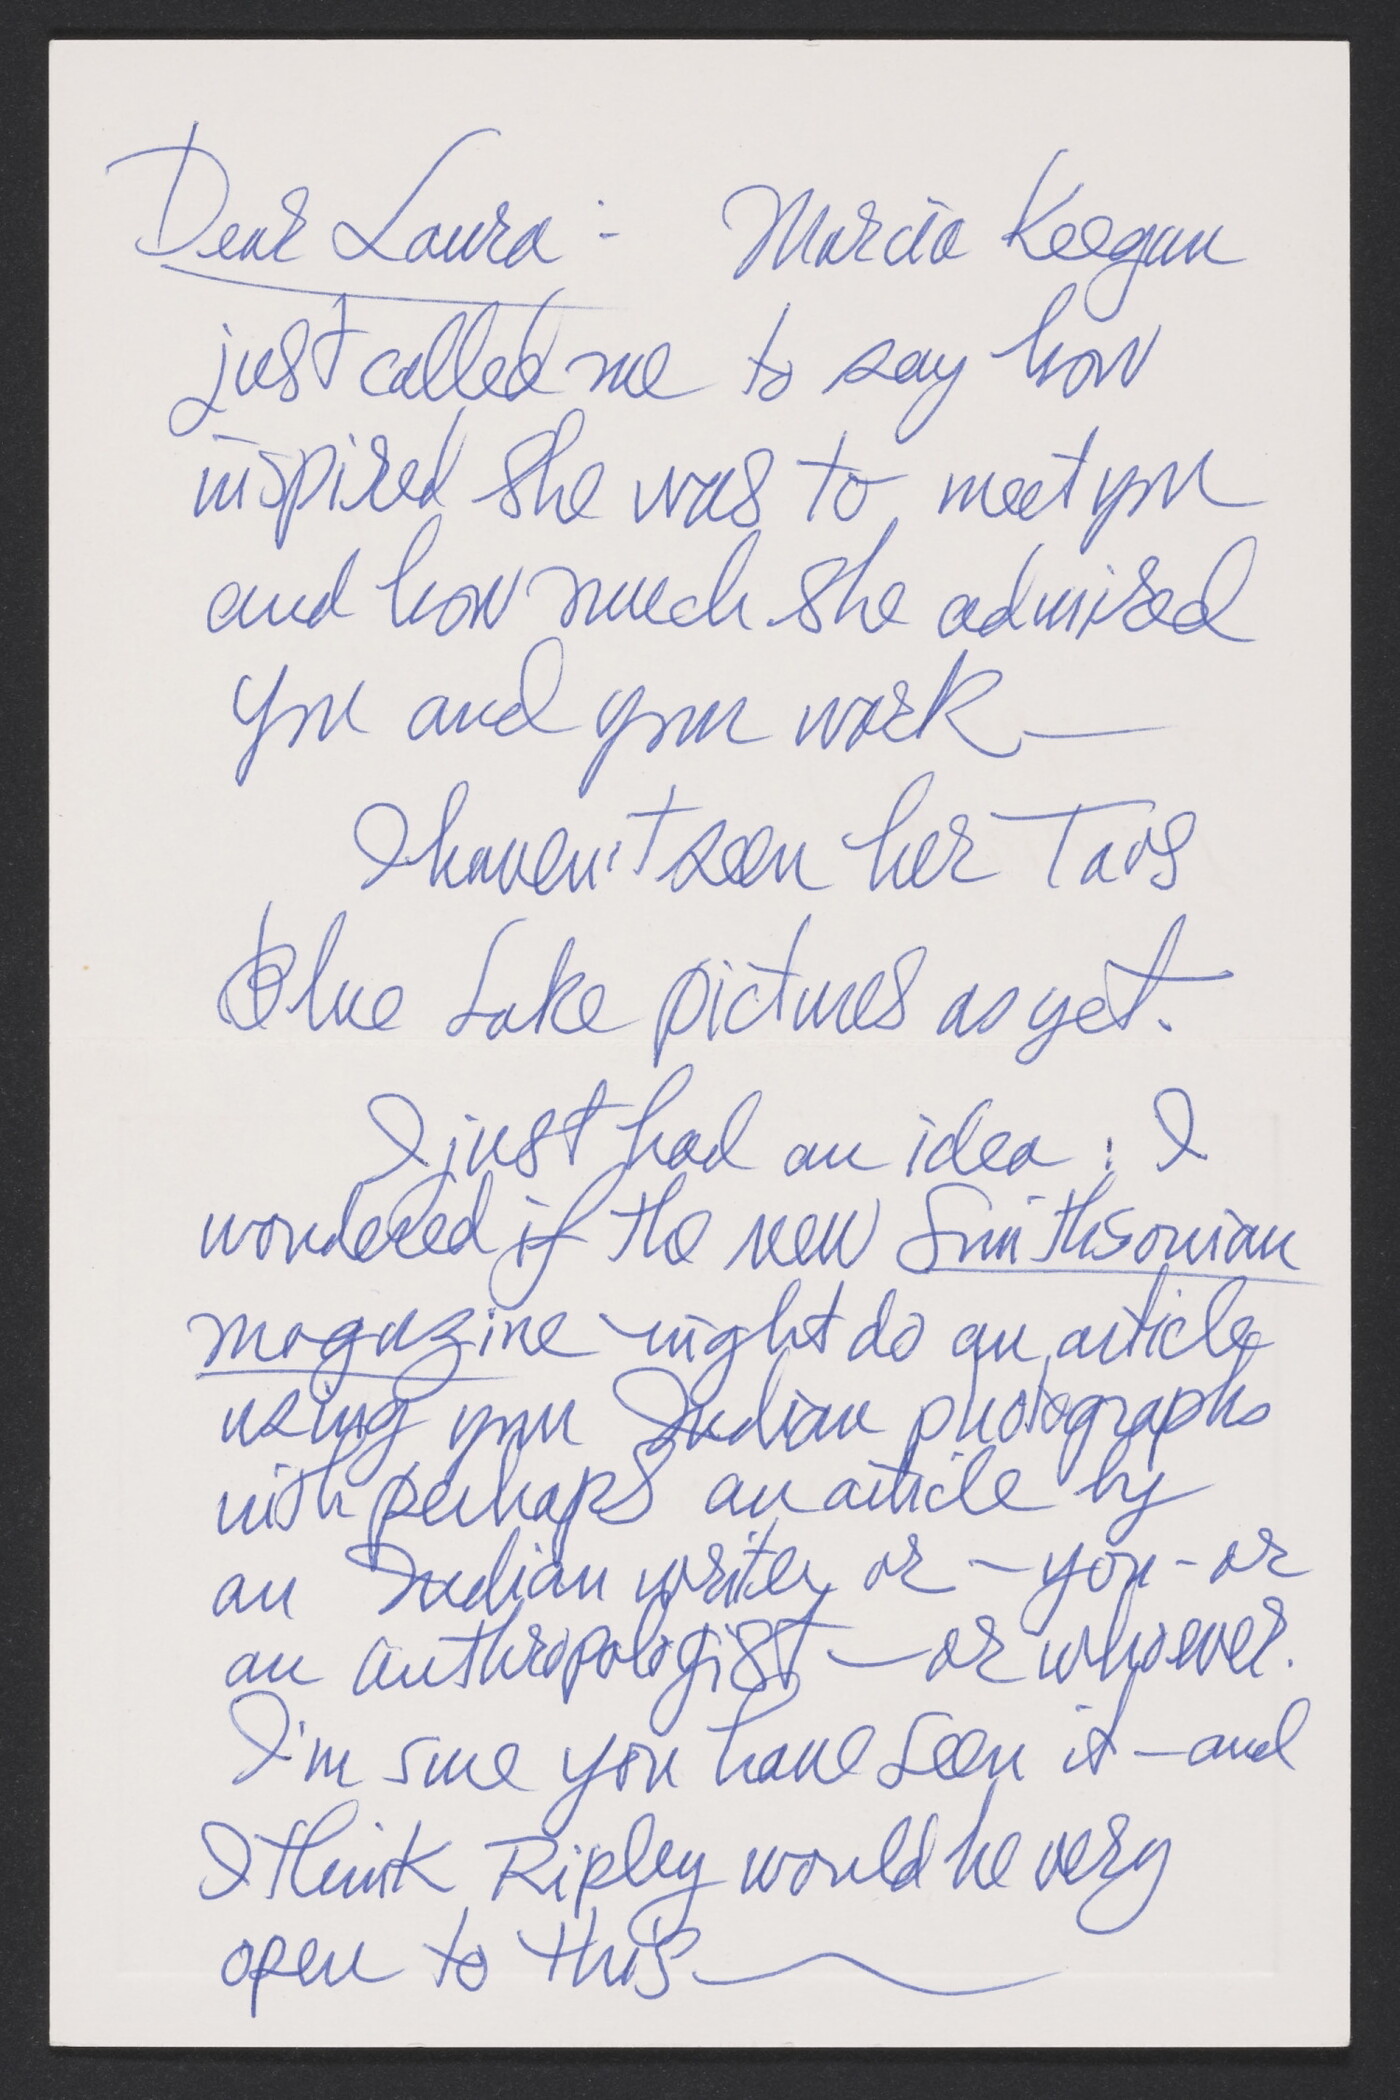 Dear Laura :- Marcia Keegan
just called me to say how
inspired she was to meet you
and how much she admired
you and your work —
I haven't seen her Taos
Blue Lake pictures as yet.
I just had an idea : I
wondered if the new Smithsonian
magazine might do an article
using your Indian photographs
with perhaps an article by
an Indian writer, or - you - or
an anthropologist — or whoever.
I'm sure you have seen it — and
I think Ripley would be very
open to this —